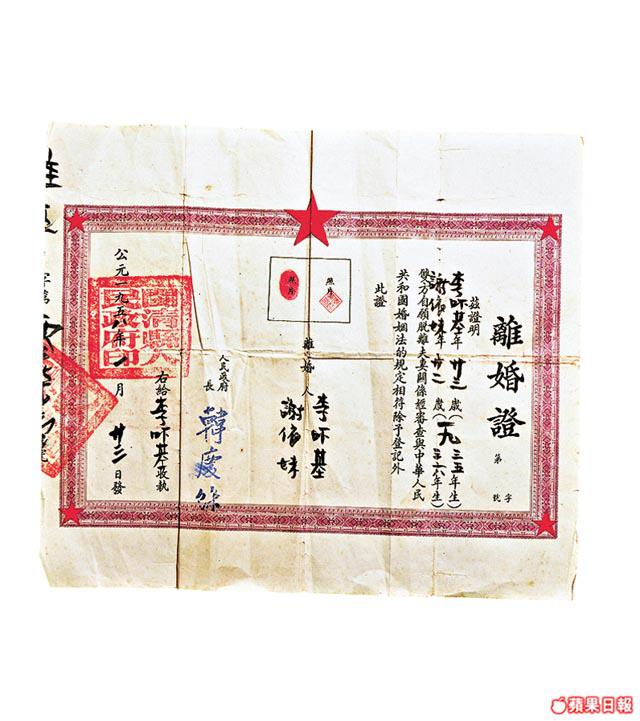 離婚證
第 字號
茲證明
李吓基年廿三歲(一九三五年生)
謝依妹年廿二歲(一九三六年生)
雙方自願脫離夫妻關係經審查與中華人民
共和國婚姻法的規定相符除予登記外
此證
照片
照片
離婚人
李吓基
謝依妹
人民政府
長
韓慶
右給李吓基收執
公元一九五八年 月廿三日發
閩清縣人民政府印
字第
蘋果日報